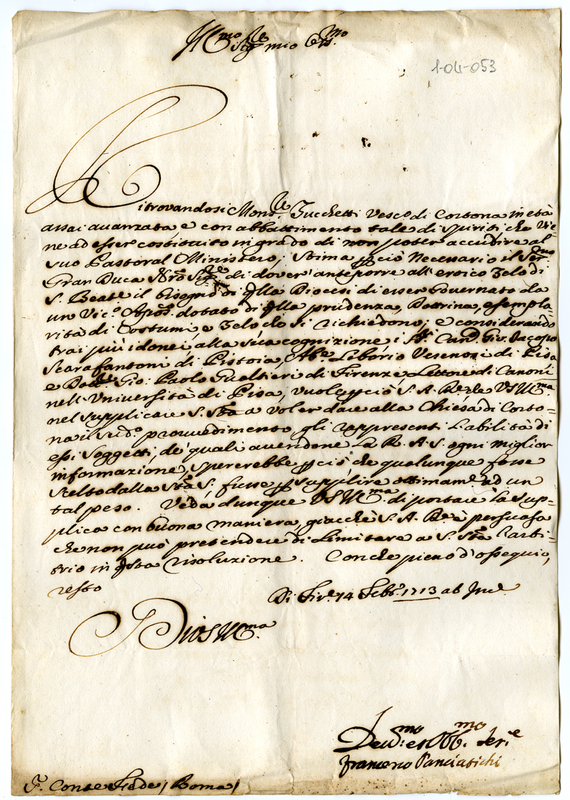 Ill.mo Sig.re mio Oss.mo
1-04-053
Ritrovandosi Mons.re Tucchetti Vesc.o di Cortona in età
assai avanzata e con abbattimento tale di spiriti che vie
ne ad esser costituito in grado di non poter accudire al
suo Pastoral Ministero, stima perciò necessario il Ser.mo
Gran Duca Nro Sig.re di dover anteporre all'eroico Zelo di
S. Beat.e il bisogno di qlla Diocesi di esser Governata da
un Vic.o Apos. dotato di qlla prudenza, Dottrina, esempla-
rità di Costumi e Zelo che si richiedono; e considerando
trai più idonei alla sua cognizione i S.ri Can.co Gio: Jacopo
Scarafantoni di Pistoia, Ab.e Liborio Venerosi di Pisa
e Dott.e Gio: Paolo Gualtieri di Firenze Lettore di Canoni
nell'Università di Pisa, vuole perciò S. A. R. che VS Ill.ma
nel supplicare S. S.tà a voler dare alla Chiesa di Corto-
na il sud.o provvedimento, gli rappresenti l'abilità di
essi Soggetti, de quali avendone a R. A. S. ogni miglior
informazione, spererebbe perciò che qualunque fosse
scelto dalla S.tà S. fusse per supplire ottimam.e ad un
tal peso. Veda dunque VS Ill.ma di portare la sup-
plica con buona maniera, giacchè S. A. R. è persuasa
che non può pretendere di limitare a S. S.tà l'arbi-
trio in qsta risoluzione. Con che pieno d'ossequio,
resto
Di Fir.e 14 Febb.o 1713 ab Inc.e
Di VS Ill.ma
Dev.mo et Obb.mo Ser.e
Francesco Panciatichi
S. Conte Fede / Roma /